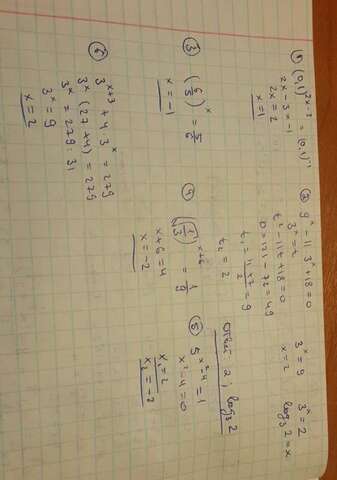 ① (0,1)^{2x-3} = (0,1)^{-1}
2x-3=-1
2x=2
x=1
② 9^x - 11·3^x + 18 = 0
3^x = t
t² - 11t + 18 = 0
D = 121 - 72 = 49
t₁ = (11+7)/2 = 9
t₂ = 2
3^x = 9    3^x = 2
x = 2    log₃2 = x
Ответ: 2; log₃2
③ (6/5)^x = 5/6
x = -1
④ (√(1/3))^{x+6} = 1/9
x+6 = 4
x = -2
⑤ 5^{x²-4} = 1
x²-4 = 0
x₁ = 2
x₂ = -2
⑥ 3^{x+3} + 4·3^x = 279
3^x (27+4) = 279
3^x = 279 : 31
3^x = 9
x = 2